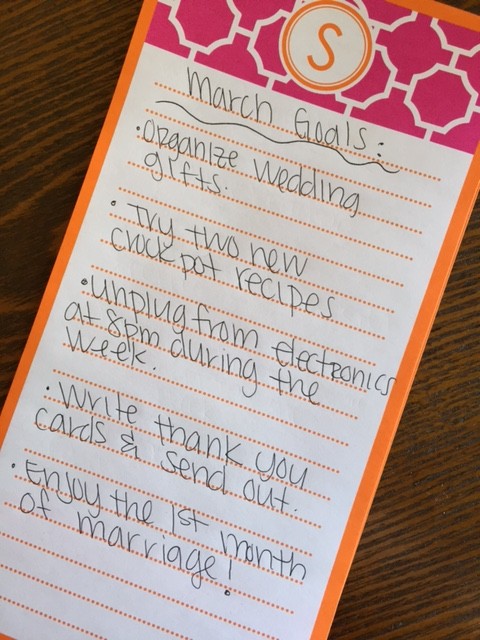 S
March Goals:
• Organize wedding
gifts.
• Try two new
crock pot recipes
• Unplug from electronics
at 8pm during the
week.
• Write thank you
cards & send out.
• Enjoy the 1st month
of marriage!